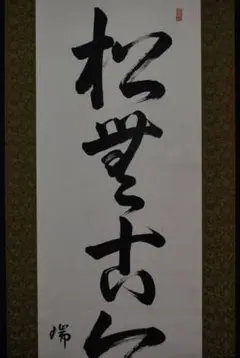 松無古今
瑞